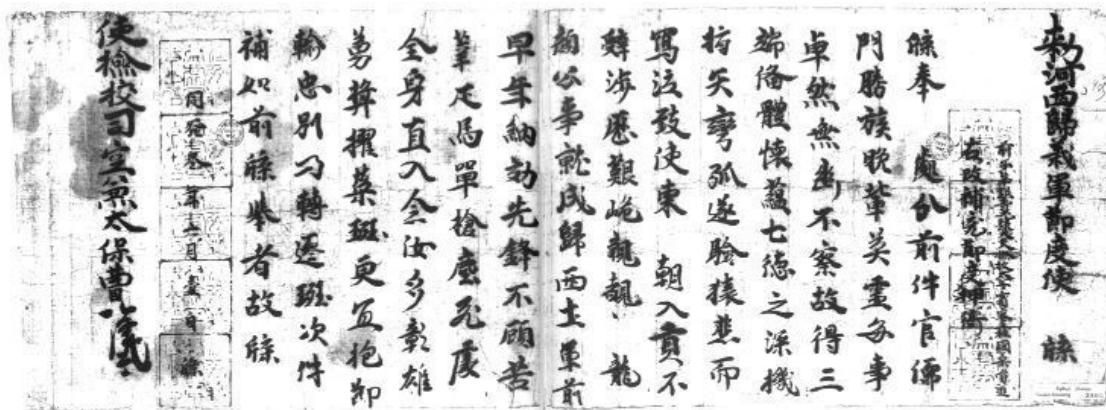 敕河西歸義軍節度使　牒
右改補充節度押衙
牒奉　處分前件官儒
門勝族晚輩英靈每事
卓然無幽不察故得三
端俻體懷蘊七德之深機
指矢彎弧遂驗猿悲而
寫泣致使東　朝入貢不
辭涉歷艱崄親覲　龍
顏公事就成歸西土軍前
早年納効先鋒不顧苦
莘疋馬單槍塵飛處
全身直入念汝多彰雄
勇獎擢榮班更宜抱節
輸忠別乃轉遷班次件
補如前牒舉者故牒
同光叁年六月壹日牒
使檢校司空兼太保曹